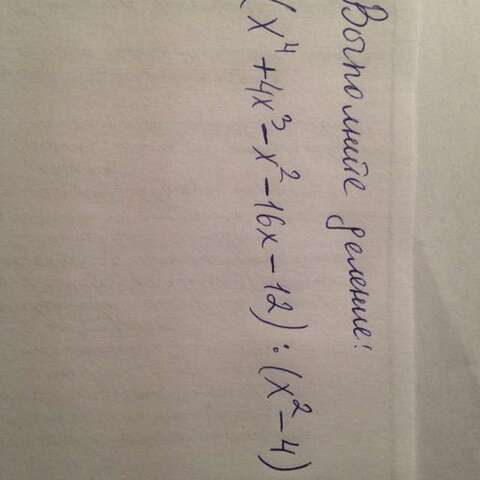 Выполните деление!
(x⁴+4x³-x²-16x-12):(x²-4)